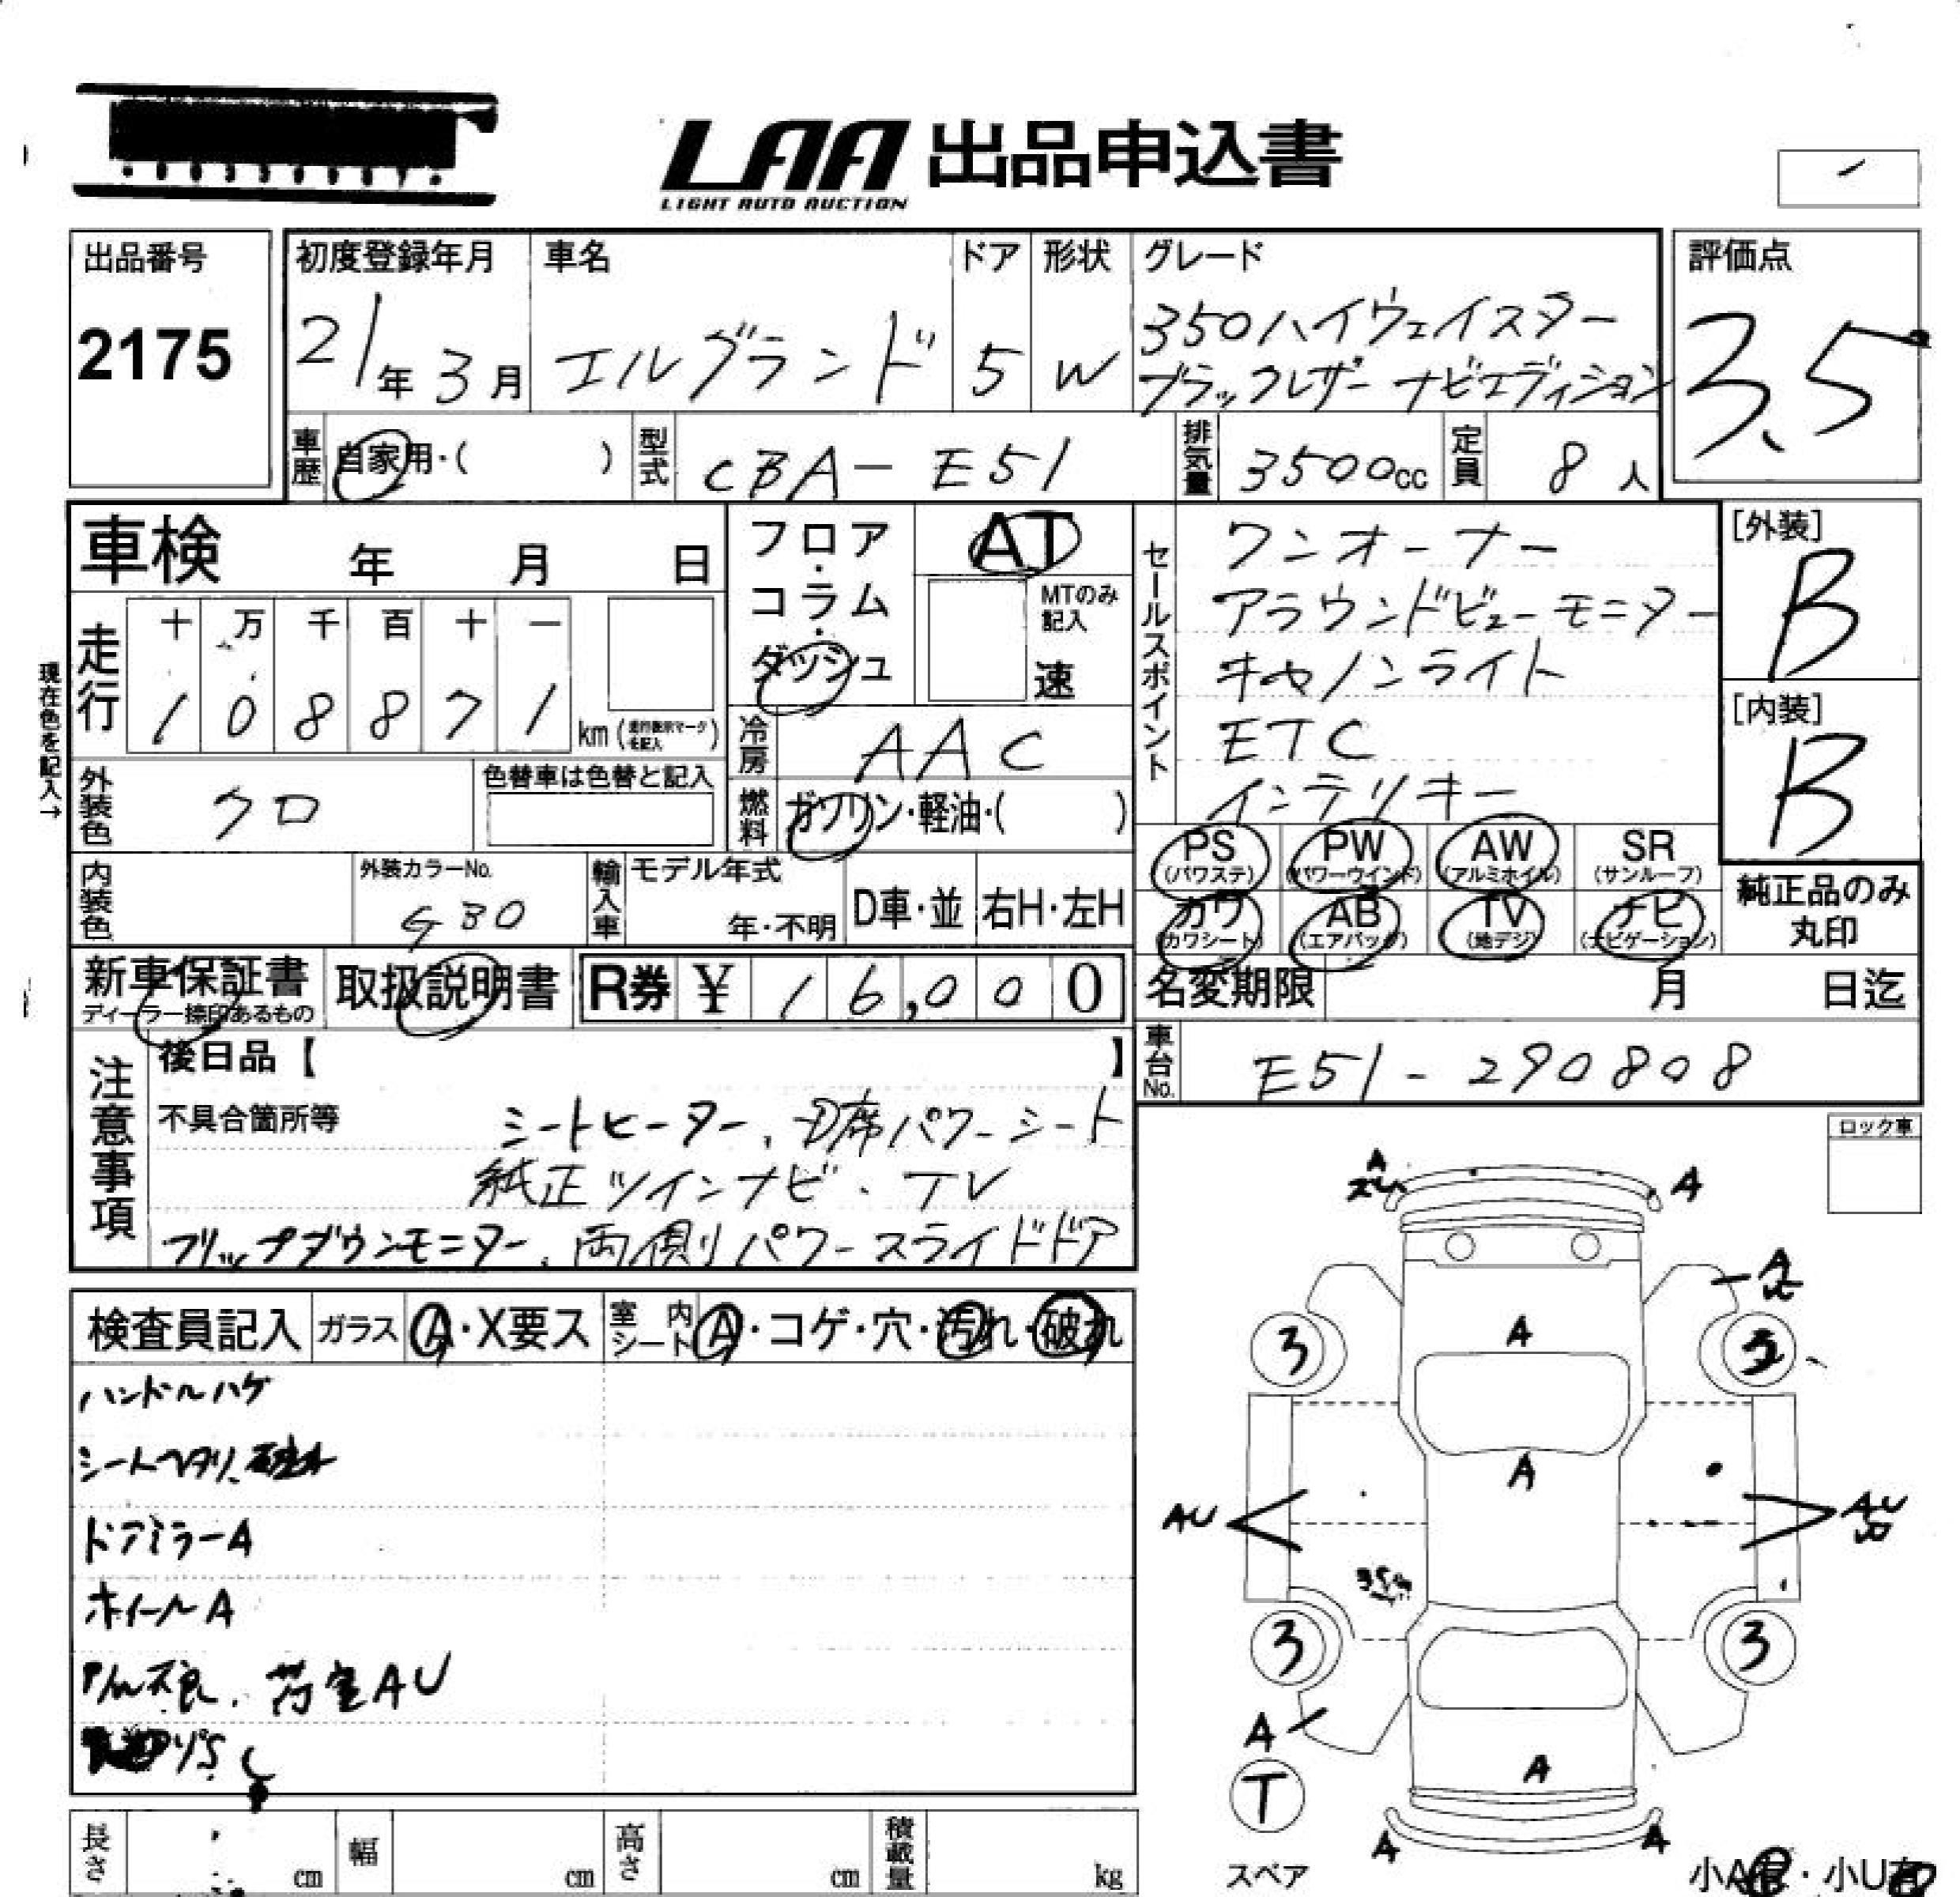 LAA 出品申込書
LIGHT AUTO AUCTION
出品番号
2175
初度登録年月
21年3月
車名
エルグランド
ドア
5
形状
W
グレード
350ハイウェイスター
ブラックレザー ナビエディション
評価点
3.5
車歴 自家用・( )
型式 CBA-E51
排気量 3500cc
定員 8人
車検 年 月 日
フロア・コラム・ダッシュ
AT
MTのみ記入
速
走行
十 万 千 百 十 一
1 0 8 8 7 1 km
現在色を記入→
冷房 AAC
燃料 ガソリン・軽油・( )
外装色 クロ
色替車は色替と記入
内装色
外装カラーNo.
GB0
輸入車
モデル年式
年・不明
D車・並
右H・左H
セールスポイント
ワンオーナー
アラウンドビューモニター
キャノンライト
ETC
インテリキー
[外装]
B
[内装]
B
PS (パワステ)
PW (パワーウインド)
AW (アルミホイル)
SR (サンルーフ)
カワ (カワシート)
AB (エアバッグ)
TV (地デジ)
ナビ (ナビゲーション)
純正品のみ
丸印
新車保証書
ディーラー捺印あるもの
取扱説明書
R券 ¥ 16,000
名変期限 月 日迄
車台No. E51-290808
注意事項
後日品【 】
不具合箇所等
シートヒーター、D席パワーシート
純正ツインナビ・TV
フリップダウンモニター、両側パワースライドドア
ロック車
検査員記入
ガラス A・X要ス
室内シート A・コゲ・穴・汚れ・破れ
ハンドルハゲ
シートヘタリ、破れ
ドアミラーA
ホイールA
不良、荷室AU
A
A
A
3
A
A
AU
AU
3
3
A
T
A
A
A
スペア
小A・小U
長さ cm
幅 cm
高さ cm
積載量 kg